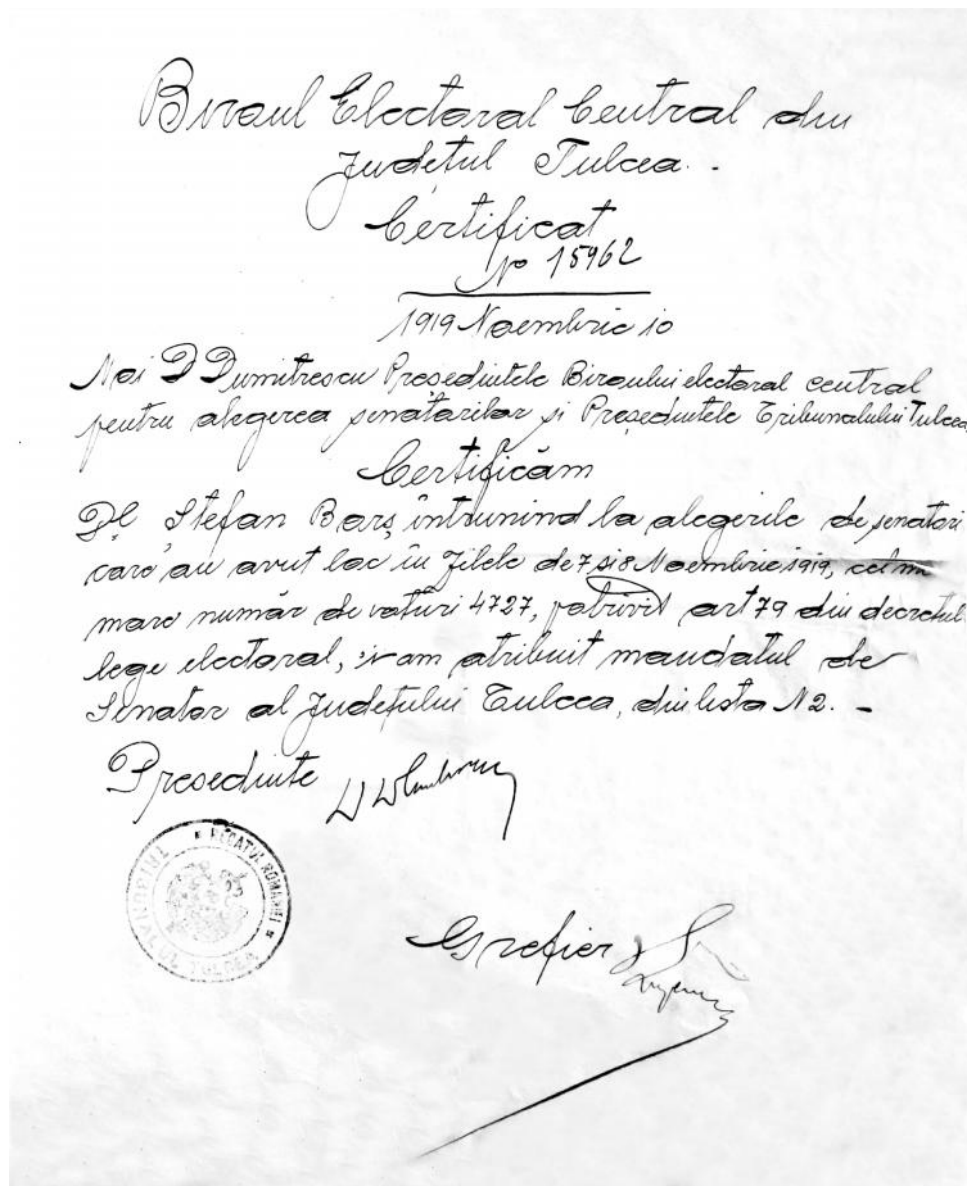 Biroul Electoral Central din
Județul Tulcea. -
Certificat
No 15962
1919 Noembrie 10
Noi D Dumitrescu Președintele Biroului electoral central
pentru alegerea senatorilor și Președintele Tribunalului Tulcea
Certificăm
Dl Ștefan Borș întrunind la alegerile de senatori
care au avut loc în zilele de 7 si 8 Noembrie 1919, cel mai
mare număr de voturi 4727, potrivit art 79 din decretul
lege electoral, i-am atribuit mandatul de
Senator al Județului Tulcea, din lista N 2. -
Presedinte
REGATUL ROMANIEI
TULCEA
Grefier